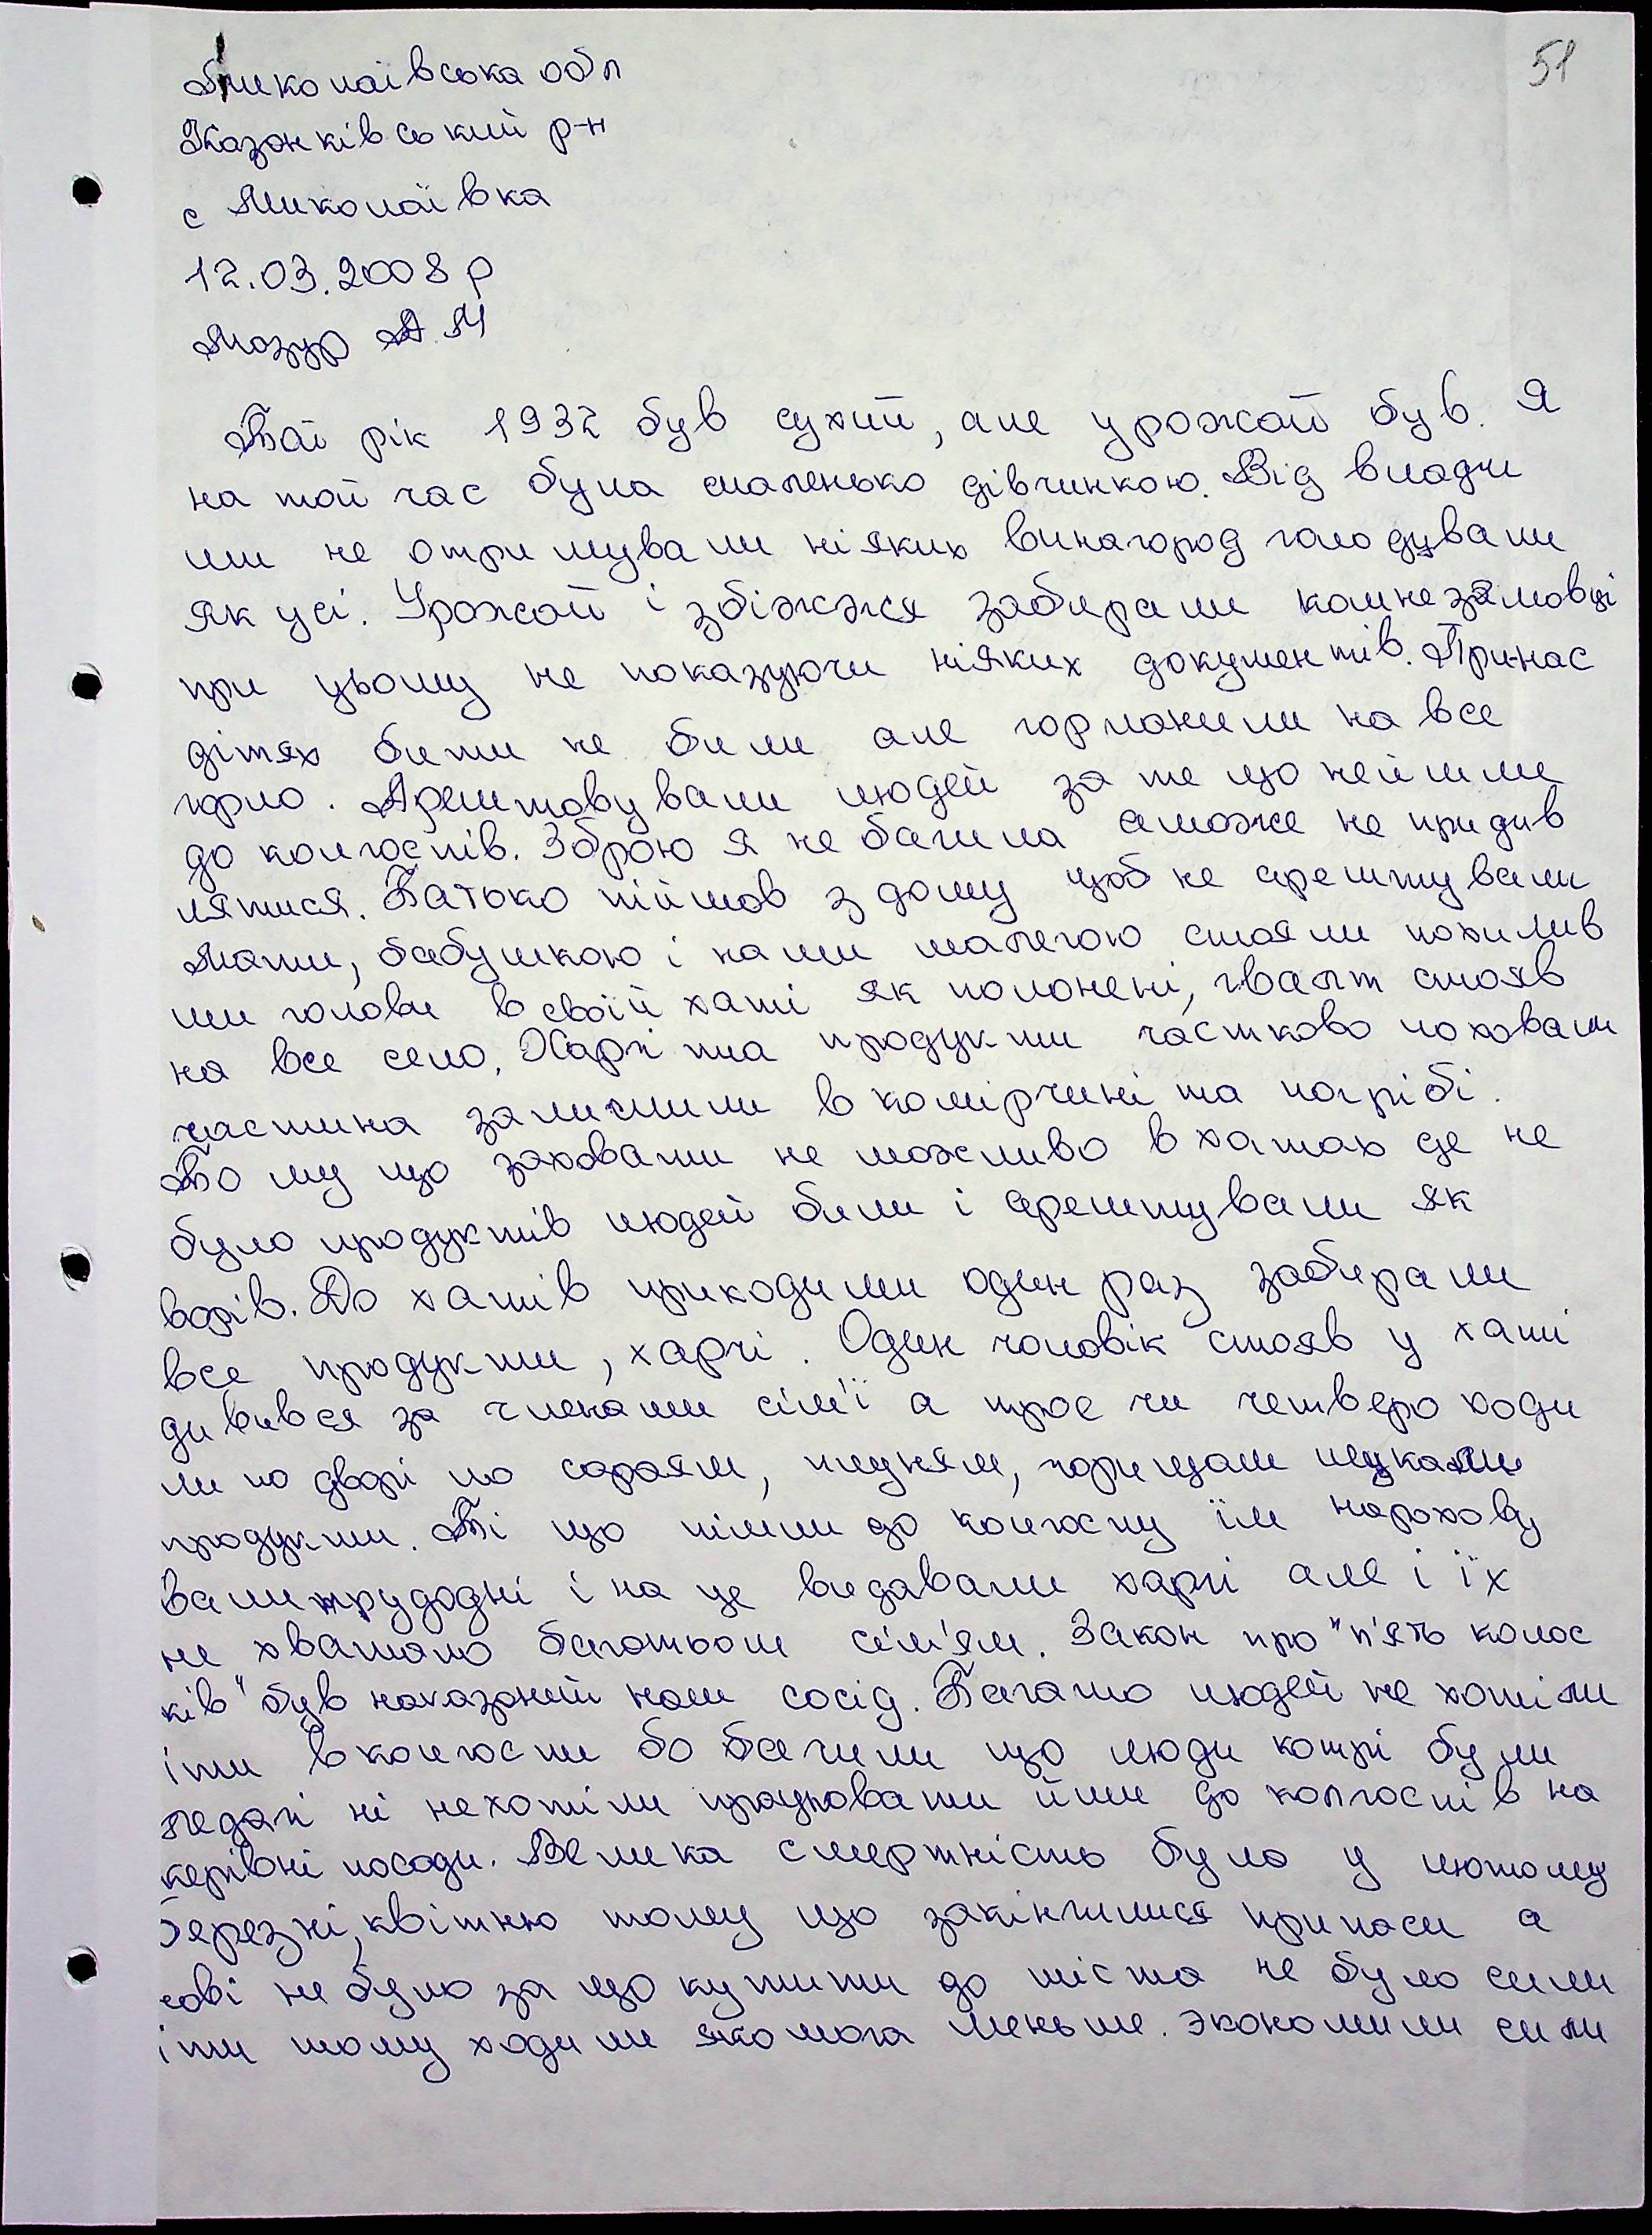 51
Миколаївська обл
Казанківський р-н
с Миколаївка
12.03.2008 р
Мазур А. М
Той рік 1932 був сухий, але урожай був. Я
на той час була маленько дівчинкою. Від влади
ми не отримували ніяких винагород голодували
як усі. Урожай і збіжжя забирали комнезамовці
при цьому не показуючи ніяких документів. При нас
дітях бити не били але горланили на все
горло. Арештовували людей за те що нейшли
до колгоспів. Зброю я не бачила аможе не придив
лятися. Батько пійшов з дому щоб не арештували
Мати, бабушкою і нами малечою стояли похилив
ши голови в своїй хаті як полонені, гвалт стояв
на все село. Харчі та продукти частково поховали
частина залишили в комірчині та погрібі.
Тому що заховати не можливо в хатах де не
було продуктів людей били і арештували як
ворів. До хатів приходили один раз забирали
все продукти, харчі. Один чоловік стояв у хаті
дивився за членами сім'ї а троє чи четверо ходи
ли по дворі по сараям, клуням, горищам шукали
продукти. Ті що пішли до колгоспу їм нарахову
вали трудодні і на це видавали харчі але і їх
не хватало багатьом сім'ям. Закон про "п'ять колос
ків" був наказаний наш сосід. Багато людей не хотіли
іти в колгоспи бо бачили що люди котрі були
ледачі ні нехотіли працювати йшли до колгоспів на
керівні посади. Велика смертність було у лютому
березні, квітню тому що закінчилися припаси а
нові не було за що купити до міста не було сили
іти тому ходили якомога меньше. экономили сили